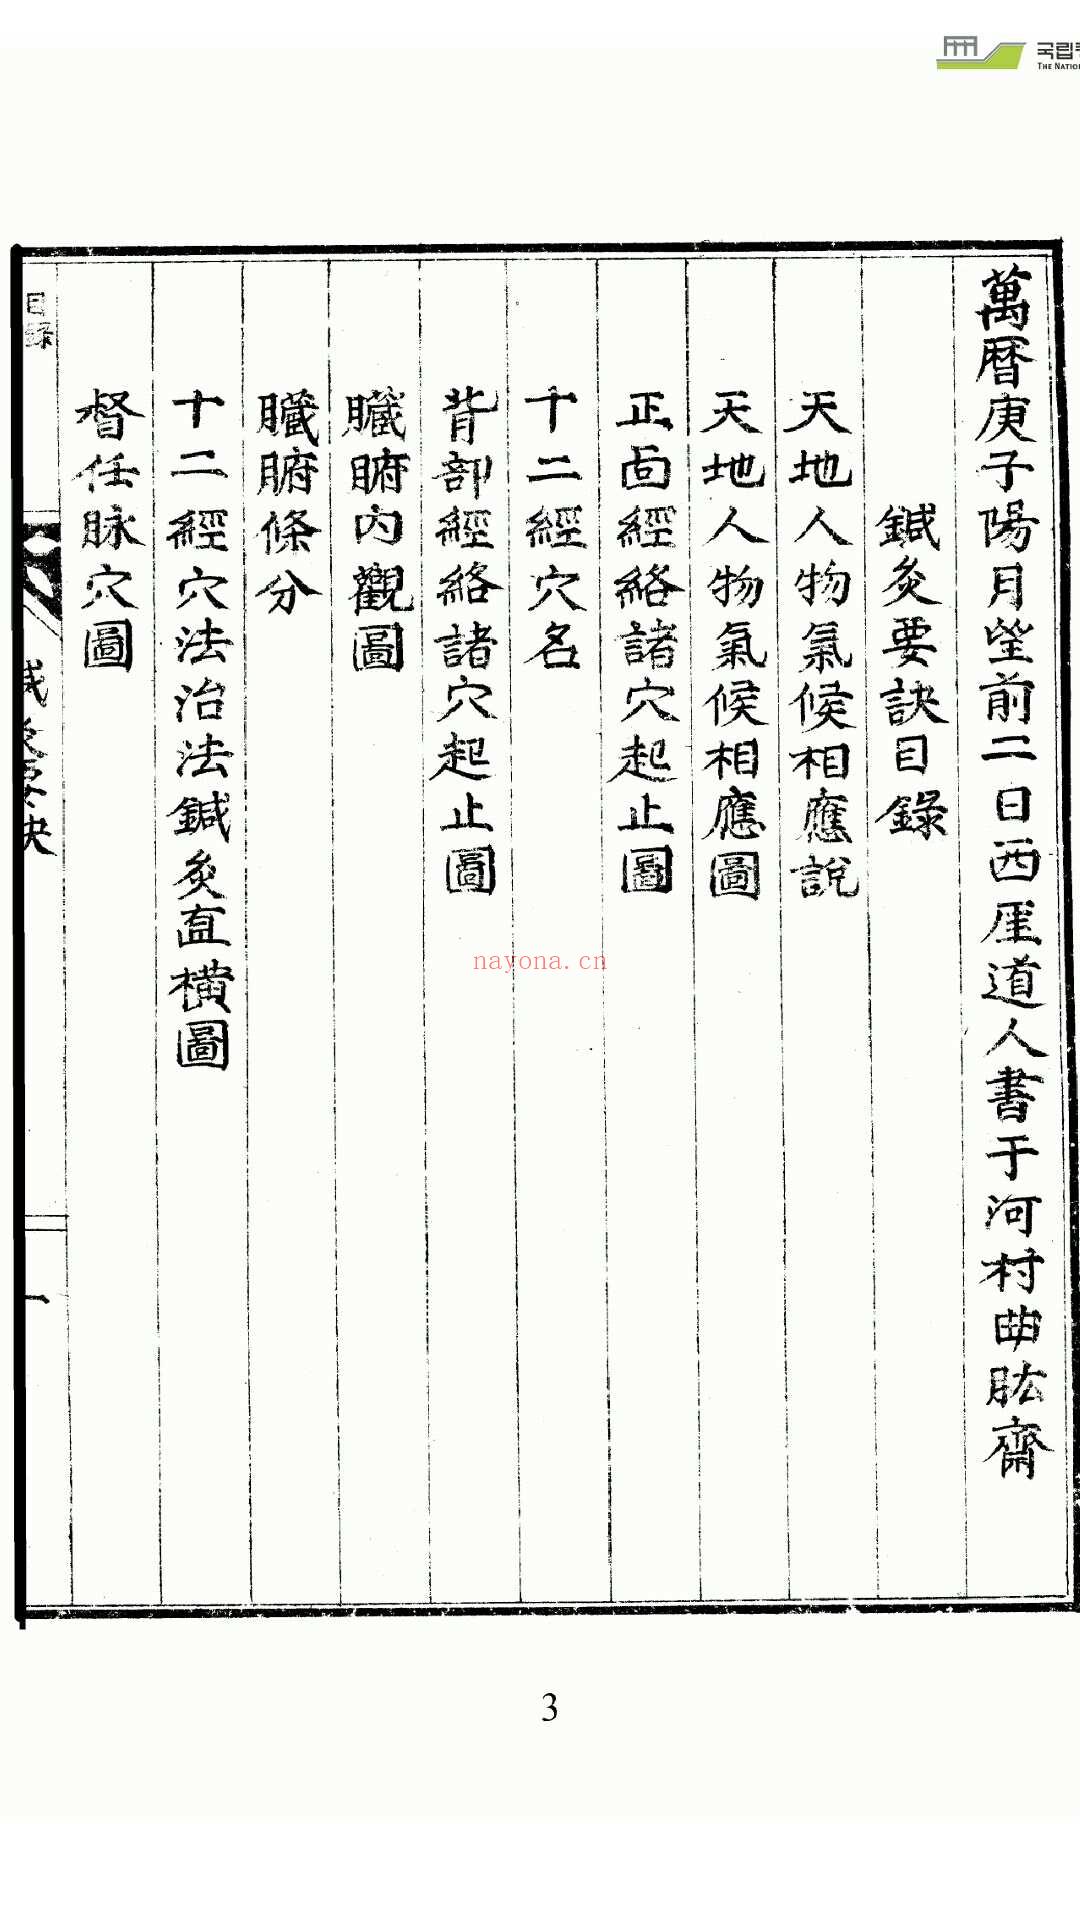 국립
THE NATIO
萬曆庚子陽月望前二日西厓道人書于河村曲肱齋
鍼灸要訣目錄
天地人物氣候相應說
天地人物氣候相應圖
正面經絡諸穴起止圖
十二經穴名
背部經絡諸穴起止圖
臟腑內觀圖
臟腑條分
十二經穴法治法鍼灸直橫圖
督任脉穴圖
目錄
鍼灸要訣
一
nayona.cn
3